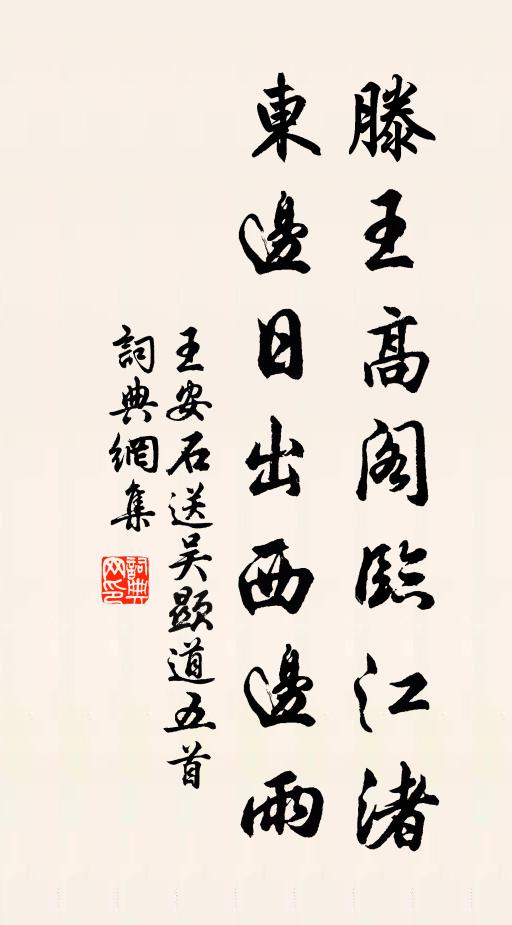 滕王高阁臨江渚
東邊日出西邊雨
王安石送吴顯道五首
詞典網集
詞典网印